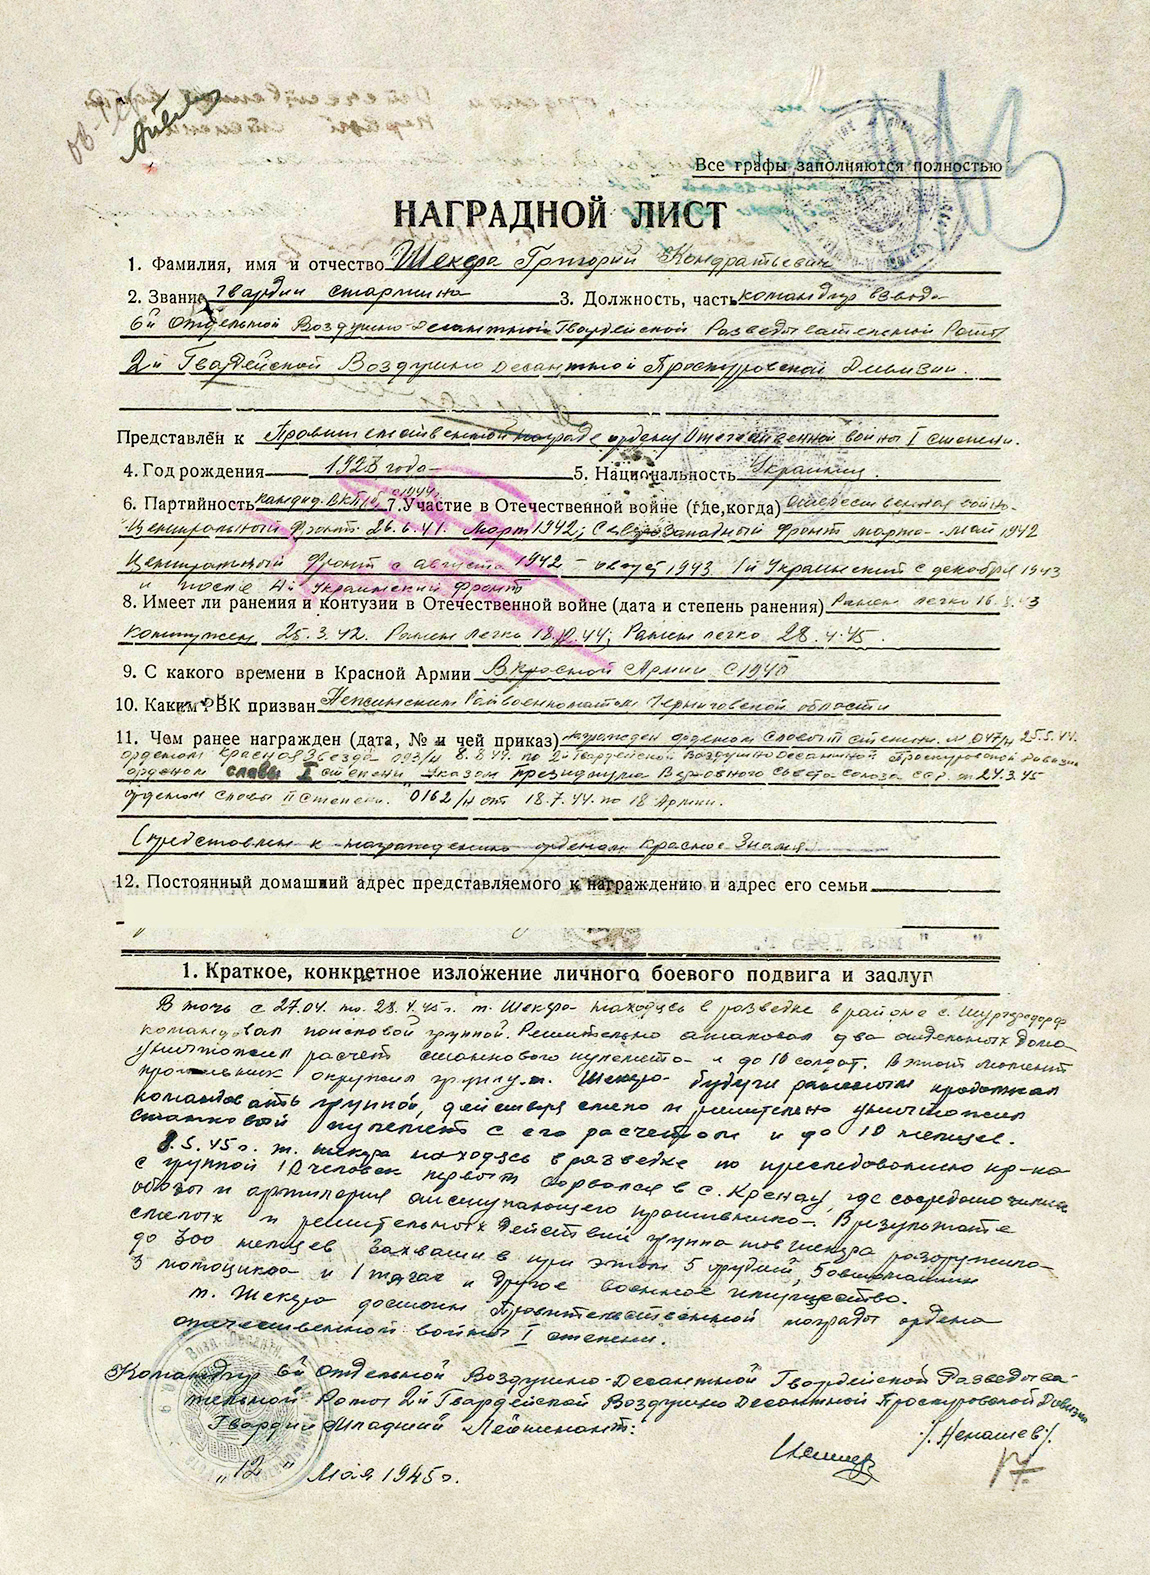 Все графы заполняются полностью
НАГРАДНОЙ ЛИСТ
1. Фамилия, имя и отчество Шекера Григорий Кондратьевич
2. Звание Гвардии старшина 3. Должность, часть командир взвода
6й Отдельной Воздушно-Десантной Гвардейской Разведывательной Роты
2й Гвардейской Воздушно Десантной Проскуровской Дивизии.
Представлен к Правительственной награде ордену Отечественной войны I степени.
4. Год рождения 1923 года 5. Национальность Украинец.
6. Партийность кандид. ВКП/б с 1944г. 7. Участие в Отечественной войне (где, когда) Отечественная война.
Центральный Фронт 26.6.41. Март 1942; Северозападный фронт марта-май 1942
Центральный Фронт с августа 1942 - август 1943 1й Украинский с декабря 1943
и после 4й Украинский Фронт
8. Имеет ли ранения и контузии в Отечественной войне (дата и степень ранения) Ранен легко 16.8.43
контужен 25.3.42. Ранен легко 18.12.44; Ранен легко 28.4.45.
9. С какого времени в Красной Армии В Красной Армии с 1940
10. Каким РВК призван Нежинским Райвоенкоматом Черниговской области
11. Чем ранее награжден (дата, № и чей приказ) награжден орденом Славы III степени. № 047/н 25.5.44.
орденом Красная Звезда 093/н 8.8.44. по 2й Гвардейской Воздушно Десантной Проскуровской дивизии
орденом славы I степени Указом Президиума Верховного Совета Союза ССР. от 24.3.45
орденом Славы II степени. 0162/н от 18.7.44. по 18 Армии.
(представлен к награждению орденом Красное Знамя)
12. Постоянный домашний адрес представляемого к награждению и адрес его семьи
1. Краткое, конкретное изложение личного боевого подвига и заслуг
В ночь с 27.04. по 28.4.45г. т. Шекера находясь в разведке в районе с.
командовал поисковой группой. Решительно атаковал два отдельных дома
уничтожил расчет станкового пулемета и до 10 солдат. В этот момент
противник окружил группу. т. Шекера будучи раненым продолжал
командовать группой, действуя смело и решительно уничтожил
станковой пулемет с его расчетом и до 10 немцев.
8.5.45г. т. Шекера находясь в разведке по преследованию пр-ка
с группой 12 человек первым ворвался в с. Кренау, где сосредоточились
обозы и артилерия отступающего противника. В результате
смелых и решительных действий группа тов Шекера разоружила
до 300 немцев захватив при этом 5 орудий, 5 автомашин
3 мотоцикла и 1 тягач и другое военное имущество.
т. Шекера достоин Правительственной награды ордена
отечественной войны I степени.
Командир 6й Отдельной Воздушно-Десантной Гвардейской Разведыва-
тельной Роты 2й Гвардейской Воздушно Десантной Проскуровской Дивизии
Гвардии Младший Лейтенант:
/Ненашев/.
„12" Мая 1945г.
17